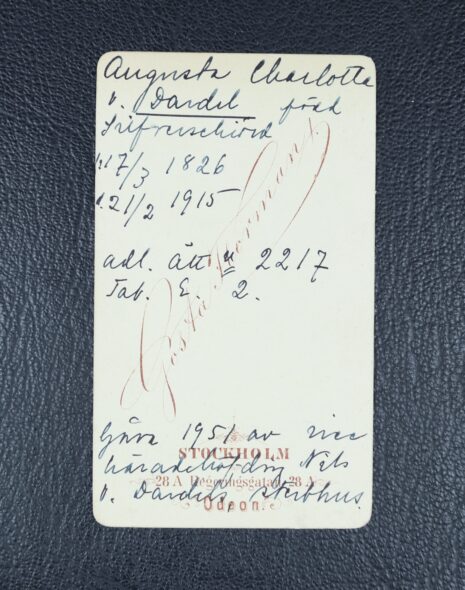 Augusta Charlotta
v. Dardel född
Silfverschiöld
f. 17/3 1826
d. 21/2 1915
adl. ätt n 2217
Tab. E 2.
Gösta Florman
Gåva 1951 av vice
STOCKHOLM
häradshöfding Nils
28 A Regeringsgatan 28 A
v. Dardels sterbhus.
Odeon.